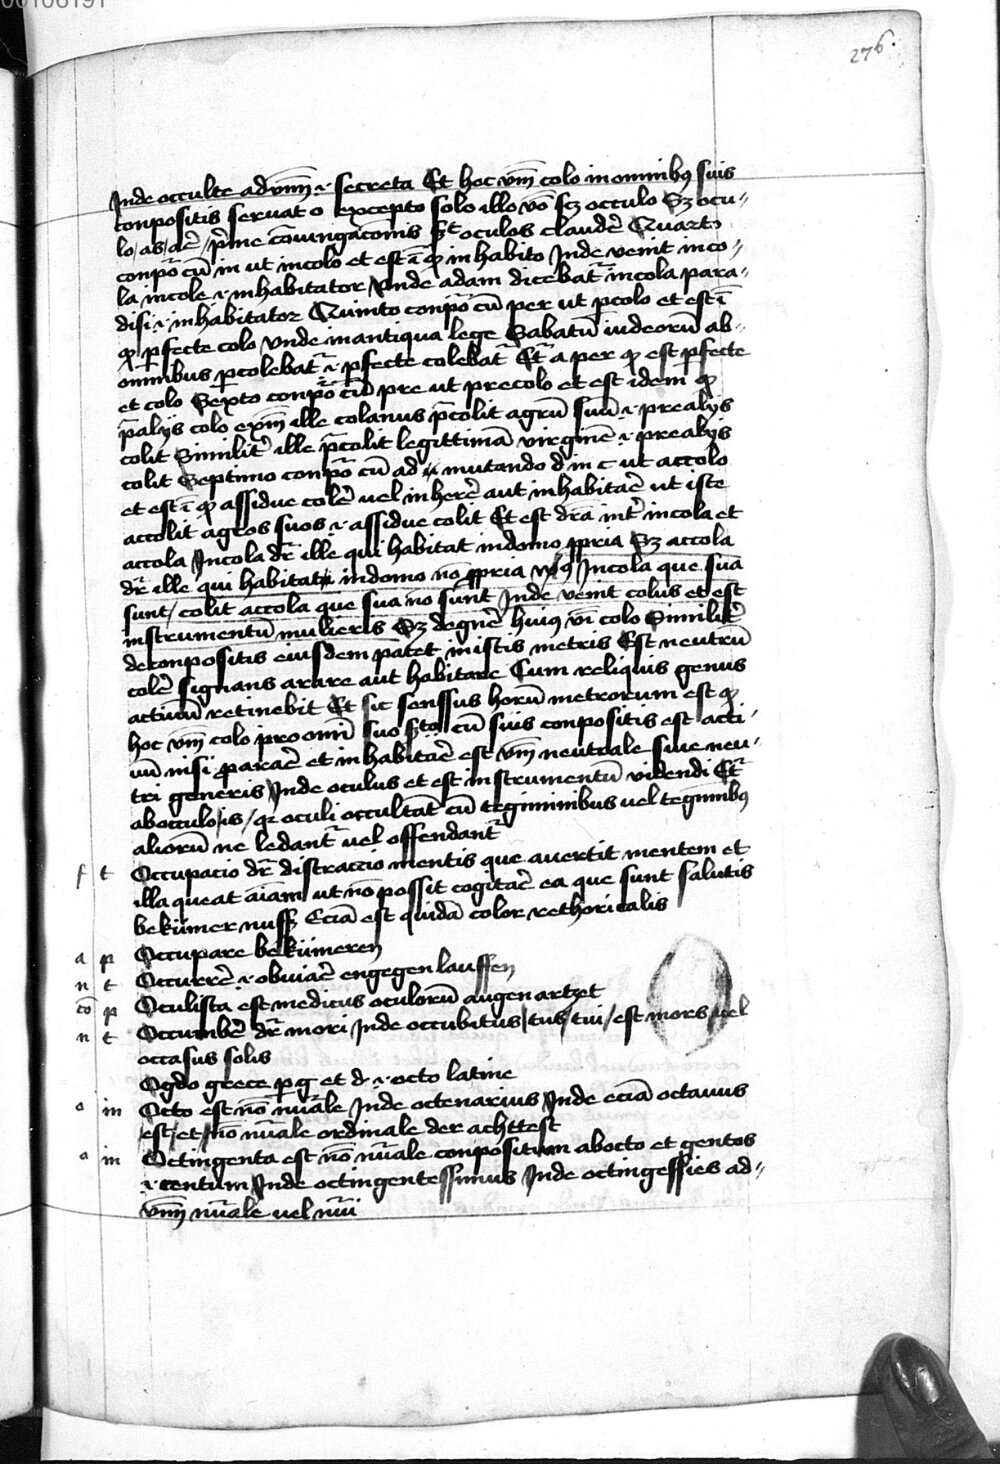 00106191
276.
Inde occulte adv̄m̄ .i. secreta Et hoc v̄m̄ colo in omnibꝰ suis
conpositis servat o excepto solo illo vō scꝫ occulo Sꝫ ocu„
lo/as/ac̄ /p̄me cōiugacōnis sꝫ oculos claudē Quarto
conpō cū in ut incolo et est ī ꝙ inhabito Inde venit inco„
la incole .i. inhabitator Unde adam dicebat̄ incola para„
disi .i. inhabitator Quinto conpō cū per ut ꝑcolo et est ī
ꝙ ꝑfecte colo Unde in antiqua lege Sabatū iudeorū ab„
omnibus ꝑcolebat̄ .i. ꝑfecte colebat̄ Et̄ a per ꝙ est ꝑfecte
et colo Sexto conpō cū pre ut precolo et est idem ꝙ
p̄alijs colo exm̄ ille colanus p̄colit agrū suū .i. prealijs
colit Similit̄ ille p̄colit legittimā virginē .i. prealijs
colit Septimo conpō cū ad mutando d in c ut accolo
et est ī ꝙ assidue colē vel inherē aut inhabitac̄ ut iste
accolit agros suos .i. assidue colit Et est dr̄a int̄ incola et
accola Incola dr̄ ille qui habitat in domo ꝓpria Sꝫ accola
dr̄ ille qui habitat in domo nō ꝓpria v̄sꝰ Incola que sua
sunt/ colit accola que sua nō sunt Inde venit colus et est
instrumentū mulieris Sꝫ de gnē huiꝰ v̄i colo Similit̄
de conpositis eiusdem patet in istis metris Est neutrū
colē signans arare aut habitare Cum reliquis genus
activū retinebit Et sic senssus horū metrorum est ꝙ
hoc v̄m̄ colo pro omī suo sto cū suis conpositis est acti„
uū nisi ꝓ arac̄ et inhabitac̄ est v̄m̄ neutrale siue neu„
tri generis Inde oculus et est instrumentū videndi Et̄
ab occulo/is/ qꝛ oculi occultāt cū tegiminibus vel tegmībꝰ
aliorū ne ledant̄ vel offendant̄
f t Occupacio dr̄ distraccio mentis que auertit mentem et
illaqueat aīam ut nō possit cogitac̄ ea que sunt salutis
bekümernuss Eciā est quidā color rethoricalis
a p Occupare bekümeren
n t Occurrē .i. obuiac̄ engegen lauffen
cō p Oculista est medicus oculorū augen artzet
n t Occumbē dr̄ mori Inde occubitus/tus/tui/est mors vel
occasus solis
Ogdo grece p g et d .i. octo latine
o in Octo est nō nūale Inde octenarius Inde eciā octauus
est/et/nō nūale ordinale der achttest
o in Octingenta est nō nūale conpositum ab octo et gentos
.i. centum Inde octingentessimus Inde octingessies ad„
v̄m̄ nūale vel nūi